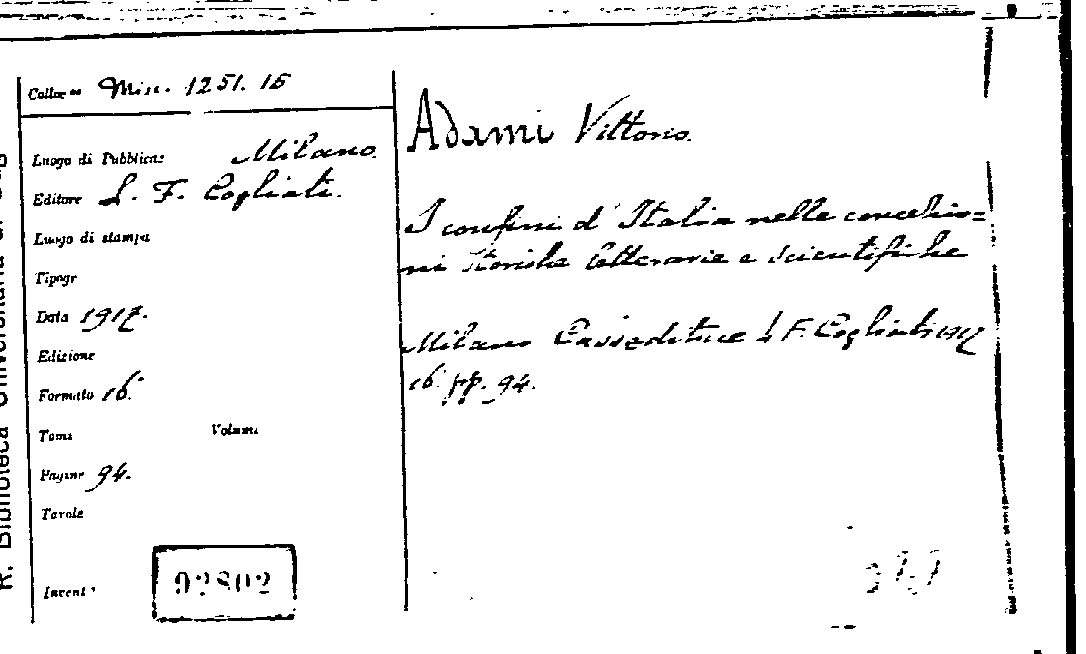 R. Biblioteca Universitaria di
Misc. 1251. 16
Luogo di Pubblicaz Milano.
Editore L. F. Cogliati.
Luogo di stampa
Tipogr
Data 1917.
Edizione
Formato 16.
Tomi Volumi
Pagine 94.
Tavole
Invent 92802
Adami Vittorio.
I confini d'Italia nelle concezio=
ni storiche letterarie e scientifiche
Milano Casa editrice L. F. Cogliati 1917
16. pp. 94.